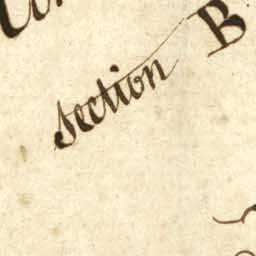 section B